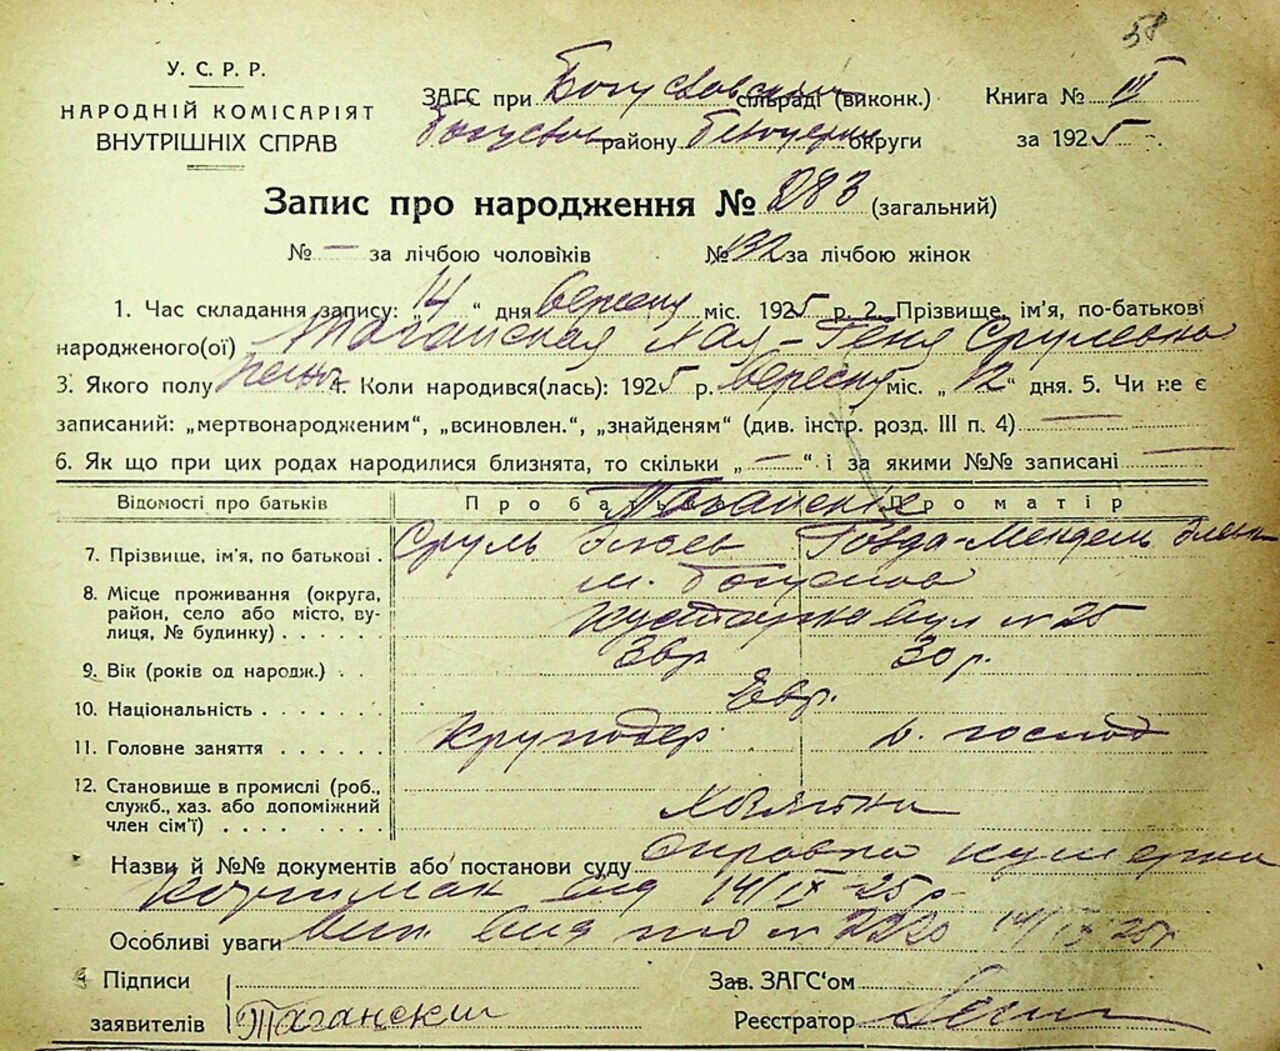 58
У. С. Р. Р.
НАРОДНІЙ КОМІСАРІЯТ
ВНУТРІШНІХ СПРАВ
ЗАГС при Богуславским сільраді (виконк.)
Книга № III
району округи
за 1925
Запис про народження № 283 (загальний)
№ — за лічбою чоловіків
№ 132 за лічбою жінок
1. Час складання запису: „14“ дня вересня міс. 1925 р. 2. Прізвище, ім'я, по-батькові
народженого(ої) Таганская Хая-Геня Срулевна
3. Якого полу 4. Коли народився(лась): 1925 р. вересня міс. „12“ дня. 5. Чи не є
записаний: „мертвонародженим“, „всиновлен.“, „знайденям“ (див. інстр. розд. III п. 4) —
6. Як що при цих родах народилися близнята, то скільки „—“ і за якими №№ записані —
Відомості про батьків
Про батька Про матір
Таганские
7. Прізвище, ім'я, по батькові . Сруль Говда-Мендель
8. Місце проживання (округа, район, село або місто, вулиця, № будинку) . . . . . . м. Богуслав
вул № 25
9. Вік (років од народж.) . . 30 р.
10. Національність . . . . . . . Евр.
11. Головне заняття . . . . . . Круподер. д. господ
12. Становище в промислі (роб., служб., хаз. або допоміжний член сім'ї) . . . . . . .
Назви й №№ документів або постанови суду Справка
14/IX-25 р.
Особливі уваги № 2220 14/IX 25 р
Підписи
Зав. ЗАГС‘ом
заявителів Таганский
Реєстратор